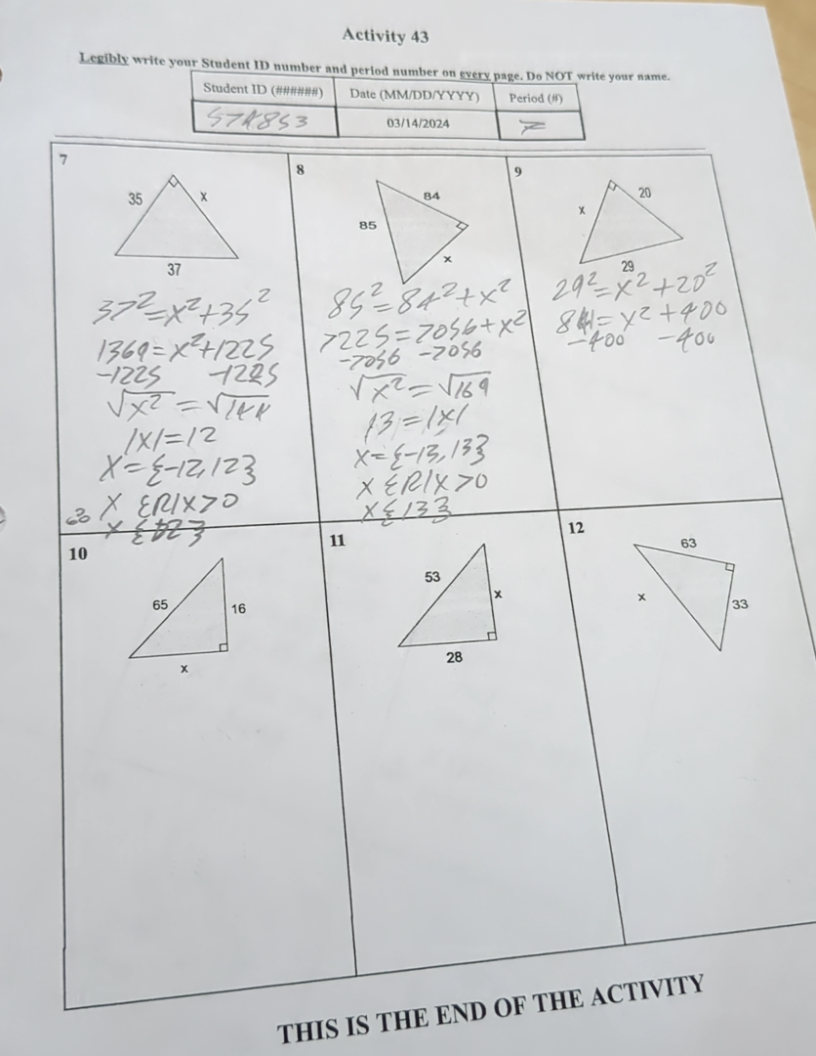 Activity 43
Legibly write your Student ID number and period number on every page. Do NOT write your name.
Student ID (######) Date (MM/DD/YYYY) Period (#)
03/14/2024 7
7
35 x
37
37²=x²+35²
1369=x²+1225
-1225 -1225
√x² = √144
|x|=12
x={-12,12}
x ER|x>0
8
84
85
x
85²=84²+x²
7225=7056+x²
-7056 -7056
√x² = √169
13=|x|
x={-13,13}
x ER|x>0
x{13}
9
20
x
29
29²=x²+20²
841=x²+400
-400 -400
10
65 16
x
11
53
x
28
12
63
x
33
THIS IS THE END OF THE ACTIVITY